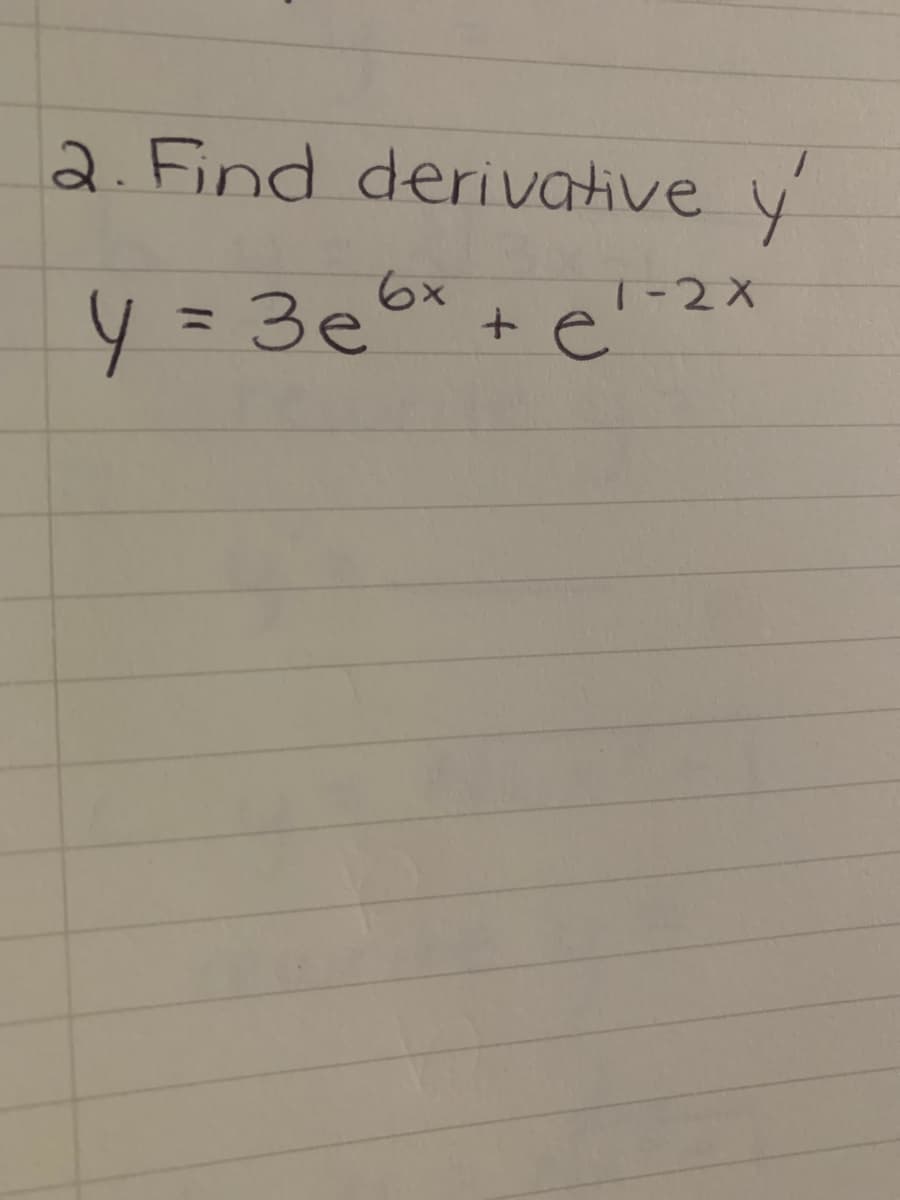 2. Find derivative y'
y = 3e^{6x} + e^{1-2x}